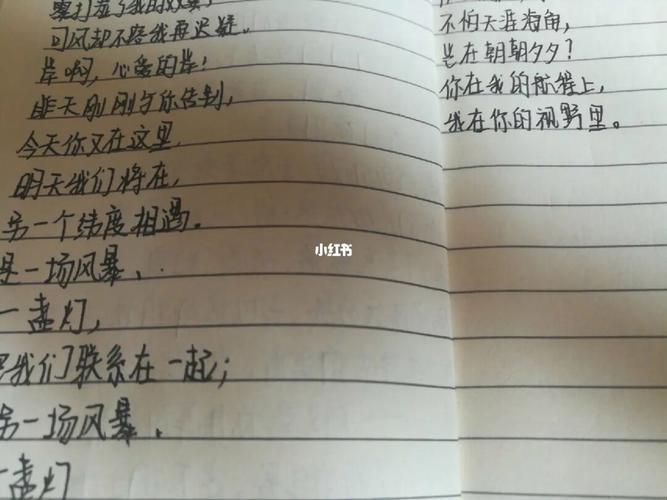 打湿了我的双鬓，
可风却不容我再迟疑。
岸啊，心爱的岸！
昨天刚刚与你告别，
今天你又在这里，
明天我们将在，
另一个纬度相遇。
是一场风暴、
一盏灯，
把我们联系在一起；
另一场风暴、
一盏灯
不怕天涯海角，
岂在朝朝夕夕？
你在我的航程上，
我在你的视野里。
小红书